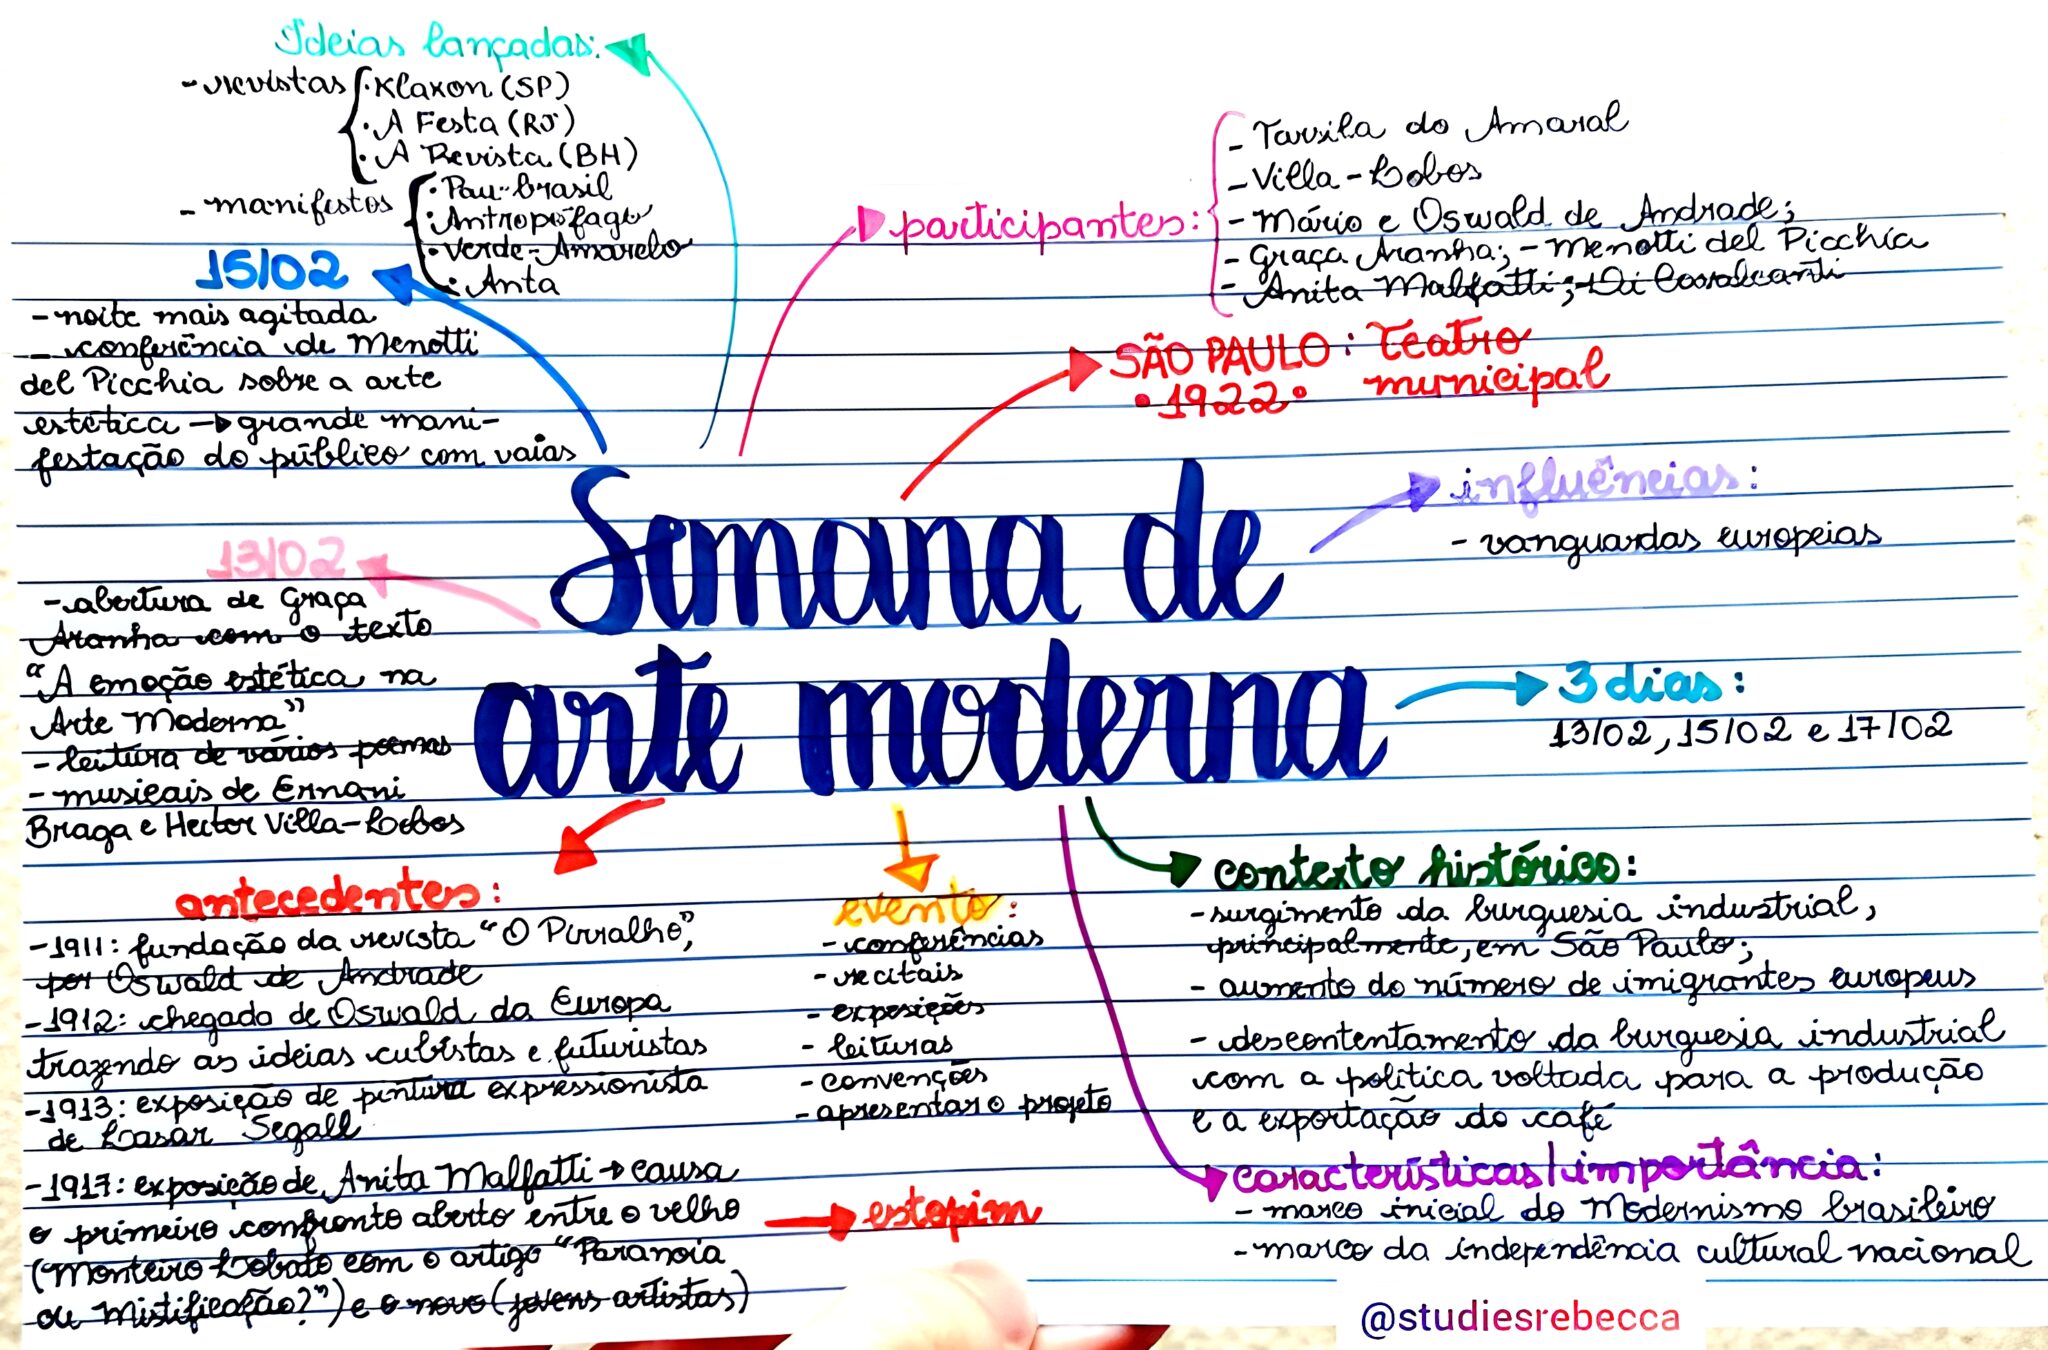 Ideias lançadas:
- revistas
· Klaxon (SP)
· A Festa (RJ)
· A Revista (BH)
- manifestos
· Pau-brasil
· Antropófago
· Verde-Amarelo
· Anta
participantes:
- Tarsila do Amaral
- Villa-Lobos
- Mário e Oswald de Andrade;
- Graça Aranha; - Menotti del Picchia
- Anita Malfatti; - Di Cavalcanti
15/02
- noite mais agitada
- conferência de Menotti
del Picchia sobre a arte
estética → grande mani-
festação do público com vaias
SÃO PAULO: Teatro
• 1922 • municipal
influências:
- vanguardas europeias
Semana de
arte moderna
13/02
- abertura de Graça
Aranha com o texto
"A emoção estética na
Arte Moderna"
- leitura de vários poemas
- musicais de Ernani
Braga e Heitor Villa-Lobos
3 dias:
13/02, 15/02 e 17/02
antecedentes:
- 1911: fundação da revista "O Pirralho",
por Oswald de Andrade
- 1912: chegada de Oswald da Europa
trazendo as ideias cubistas e futuristas
- 1913: exposição de pintura expressionista
de Lasar Segall
- 1917: exposição de Anita Malfatti → causa
o primeiro confronto aberto entre o velho
(Monteiro Lobato com o artigo "Paranoia
ou Mistificação?") e o novo (jovens artistas)
estopim
evento:
- conferências
- recitais
- exposições
- leituras
- convenções
- apresentar o projeto
contexto histórico:
- surgimento da burguesia industrial,
principalmente, em São Paulo;
- aumento do número de imigrantes europeus
- descontentamento da burguesia industrial
com a política voltada para a produção
e a exportação do café
características/importância:
- marco inicial do Modernismo brasileiro
- marco da independência cultural nacional
@studiesrebecca